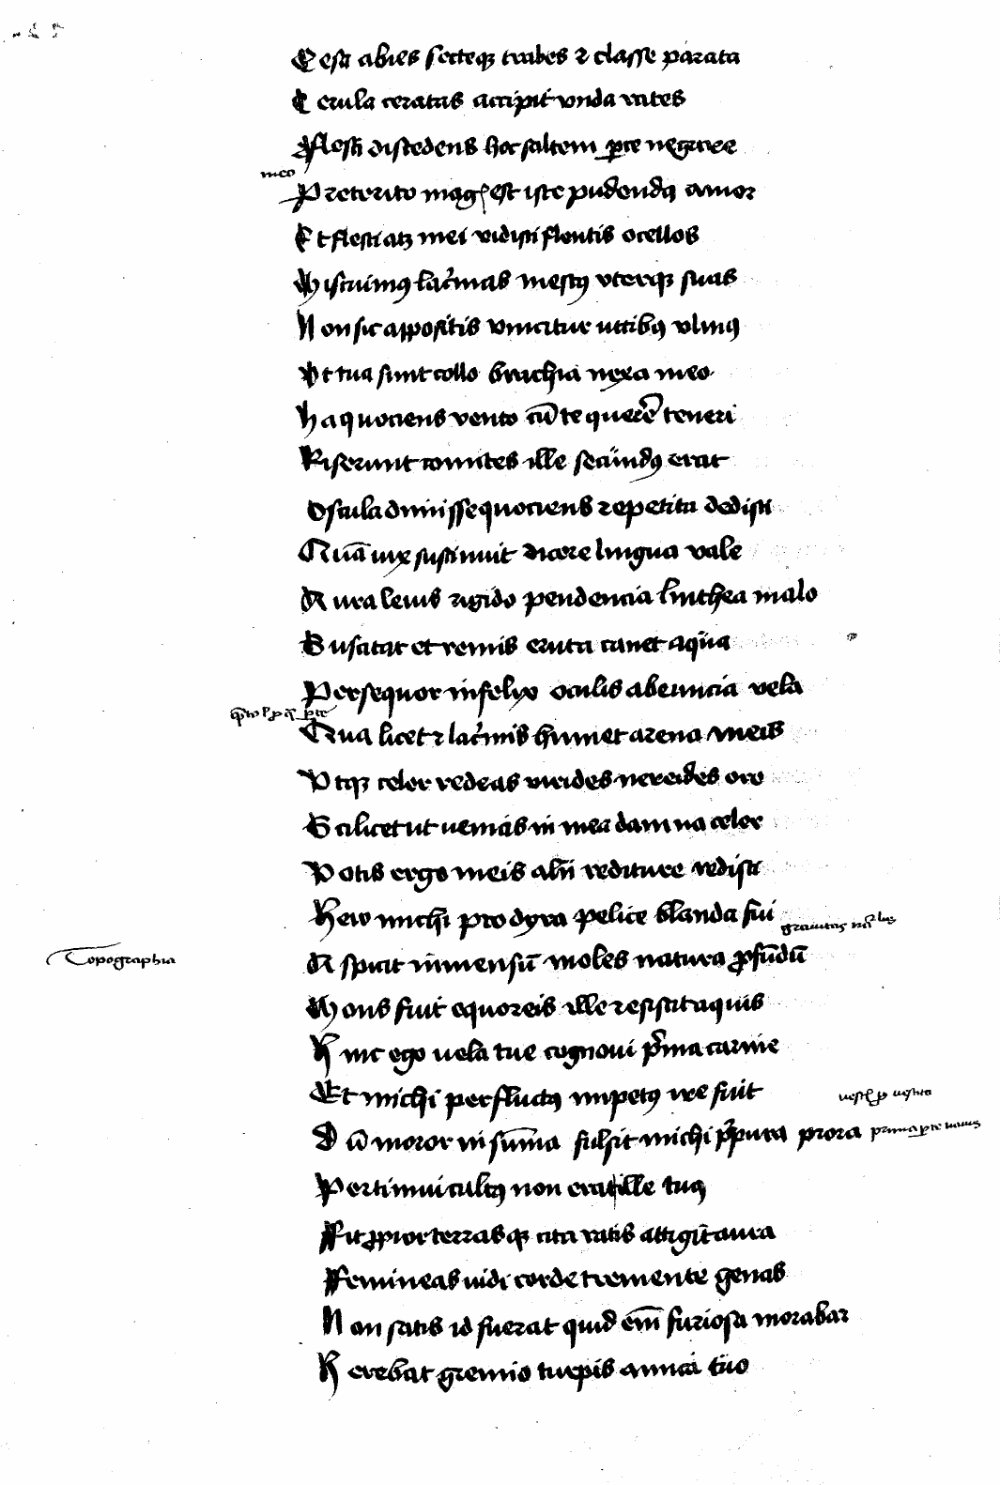 Cesa abies secteque trabes et classe parata
Cerula ceratas accipit unda rates
Flesti discedens hoc saltem parce negare
meo
Preterito magis est iste pudendus amor
Et flesti atque mei vidisti flentis ocellos
Miscuimus lacrimas mestus uterque suas
Non sic appositis vincitur vitibus ulmus
Ut tua sunt collo brachia nexa meo
Ha quociens vento cum te querere teneri
Riserunt comites ille secundus erat
Oscula dimisse quociens repetita dedisti
Quam vix sustinuit dicere lingua vale
Aura levis rigido pendencia linthea malo
Suscitat et remis eruta canet aqua
Persequor infelix oculis abeuncia vela
Qua licet et lacrimis humet arena meis
Utque celer redeas virides nereides oro
Scilicet ut venias in mea damna celer
Votis ergo meis alii rediture redisti
Hew michi pro dyra pelice blanda fui
Topographia
Aspicit immensum moles natura profundum
Mons fuit equoreis ille resistit aquis
Hinc ego vela tue cognovi prima carine
Et michi per fluctus impetus ire fuit
Dum moror in summa fulsit michi purpura prora prima parte navis
Pertimui cultus non erat ille tuus
Fit propior terrasque cita ratis attigit aura
Femineas vidi corde tremente genas
Non satis id fuerat quid enim furiosa morabar
Herebat gremio turpis amica tuo